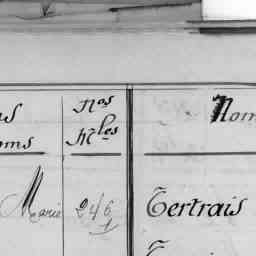 Nos
Mles
Nom
oms
Marie 246 Tertrais
1